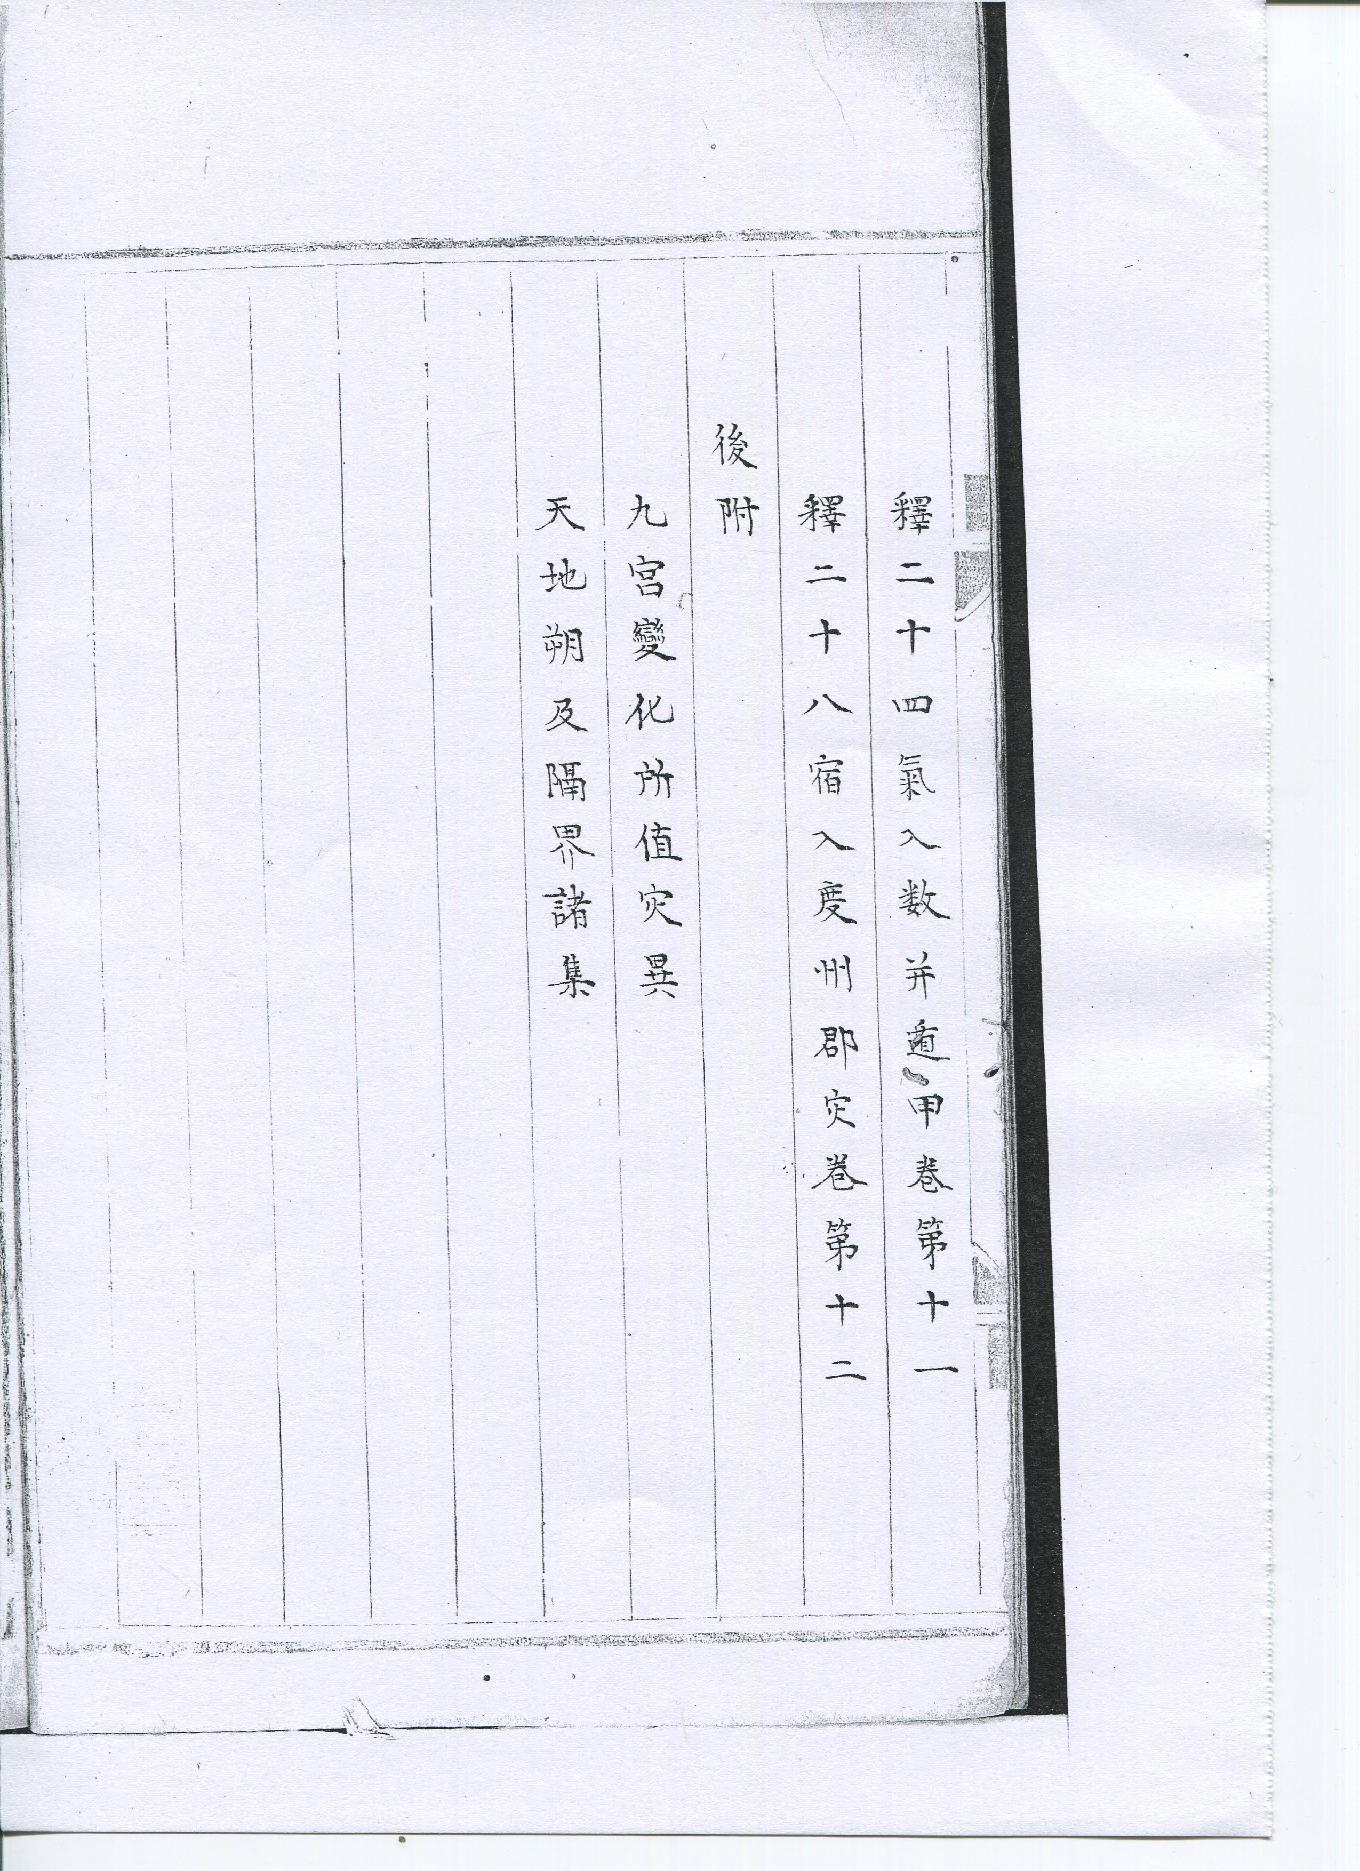 釋二十四氣入数并遁甲卷第十一
釋二十八宿入度州郡灾卷第十二
後附
九宮變化所值灾異
天地朔及隔界諸集